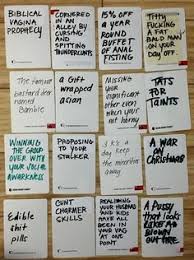 BIBLICAL
VAGINA
PROPHECY
CORNERED
IN AN
ALLEY BY
CURSING AND
SPITTING
THUNDERCUNTS
15% OFF A
YEAR
ROUND
BUFFET
OF ANAL
FISTING
TITTY
FUCKING
A FAT
BALD MAN
ON YOUR
DAY OFF.
The famous
bastard deer
named
a Gift
wrapped
asian
MISSING
YOUR
significant
other even
when your
not horny
TATS
FOR
TAINTS
WINNING
THE GROUP
OVER WITH
YOUR SOCIAL
PROPOSING
TO YOUR
STALKER
3 k's a
day keep
the
away
A WAR
ON
CHRISTMAS
Edible
shit
pills
CUNT
CHARMER
SKILLS
REALIZING
YOUR HUSBAND
AND KIDS
HAVE ALL
BEEN IN
YOUR VAG
AT ONE
POINT
A PUSSY
that looks
like a
blown
out tire.